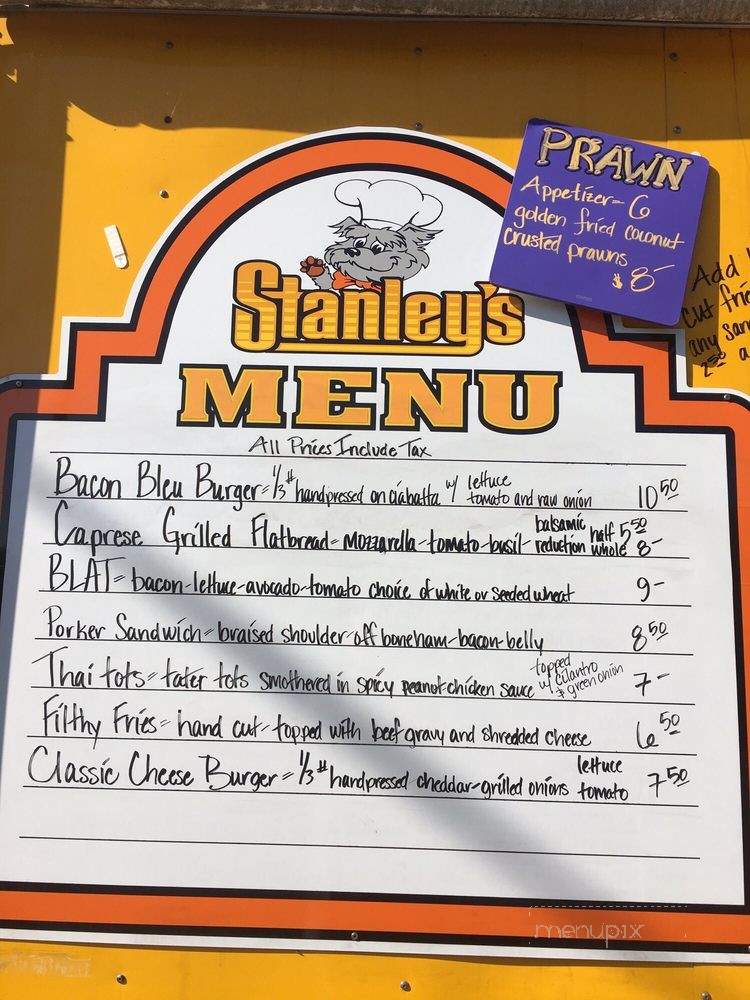 PRAWN
Appetizer - 6
golden fried coconut
crusted prawns
$8-
Add
cut frie
any san
2.50 a
Stanley's
MENU
All Prices Include Tax
Bacon Bleu Burger - 1/3 # handpressed on ciabatta w/ lettuce tomato and raw onion 10 50
Caprese Grilled Flatbread - mozzarella - tomato - basil - balsamic reduction half 5 50 whole 8-
BLAT = bacon-lettuce-avocado-tomato choice of white or seeded wheat 9-
Porker Sandwich - braised shoulder - off bone ham - bacon-belly 8 50
Thai tots = tater tots smothered in spicy peanut-chicken sauce topped w/ cilantro & green onion 7-
Filthy Fries - hand cut - topped with beef gravy and shredded cheese 6 50
Classic Cheese Burger = 1/3 # handpressed cheddar - grilled onions lettuce tomato 7 50
menupix